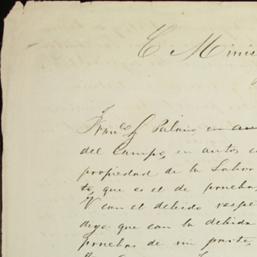 C. Minis
Franco G Palnio en au
del Campo, en autos c
propiedad de la Labor
to, que es el de prueba,
V con el debido respe
digo que con la debida
pruebas de mi parte,